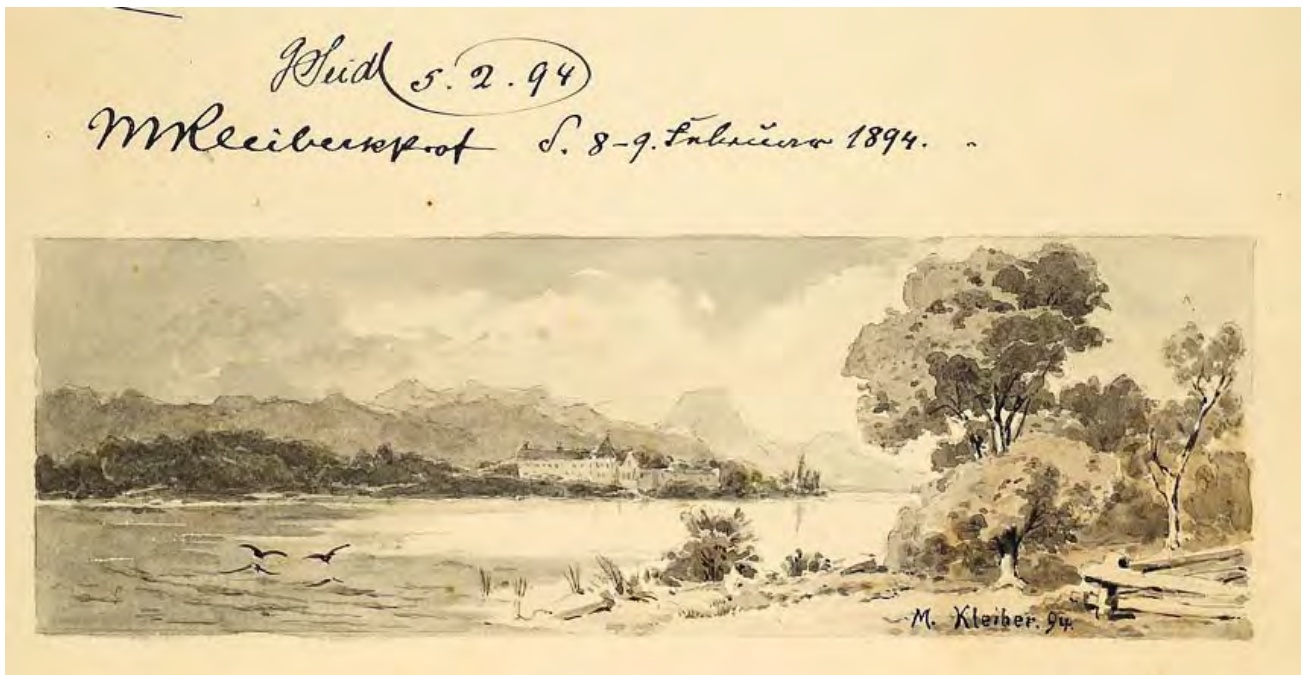 GSeidl 5.2.94
MKleiber kProf d. 8-9. Februar 1894.
M. Kleiber. 94.